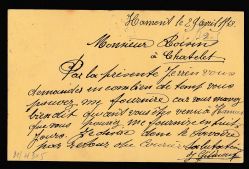 Hamont le 29 avril 19
Monsieur Boinn
à Chatelet
Par la présente je viens vous
demander in combien de temp vous
pouvez me fournire car vous mavez
bien dit quant vous êtes venus
que vous pouvez me fournire en huit
jours. Je désire donc le savoire
par retour du courrier Salutation